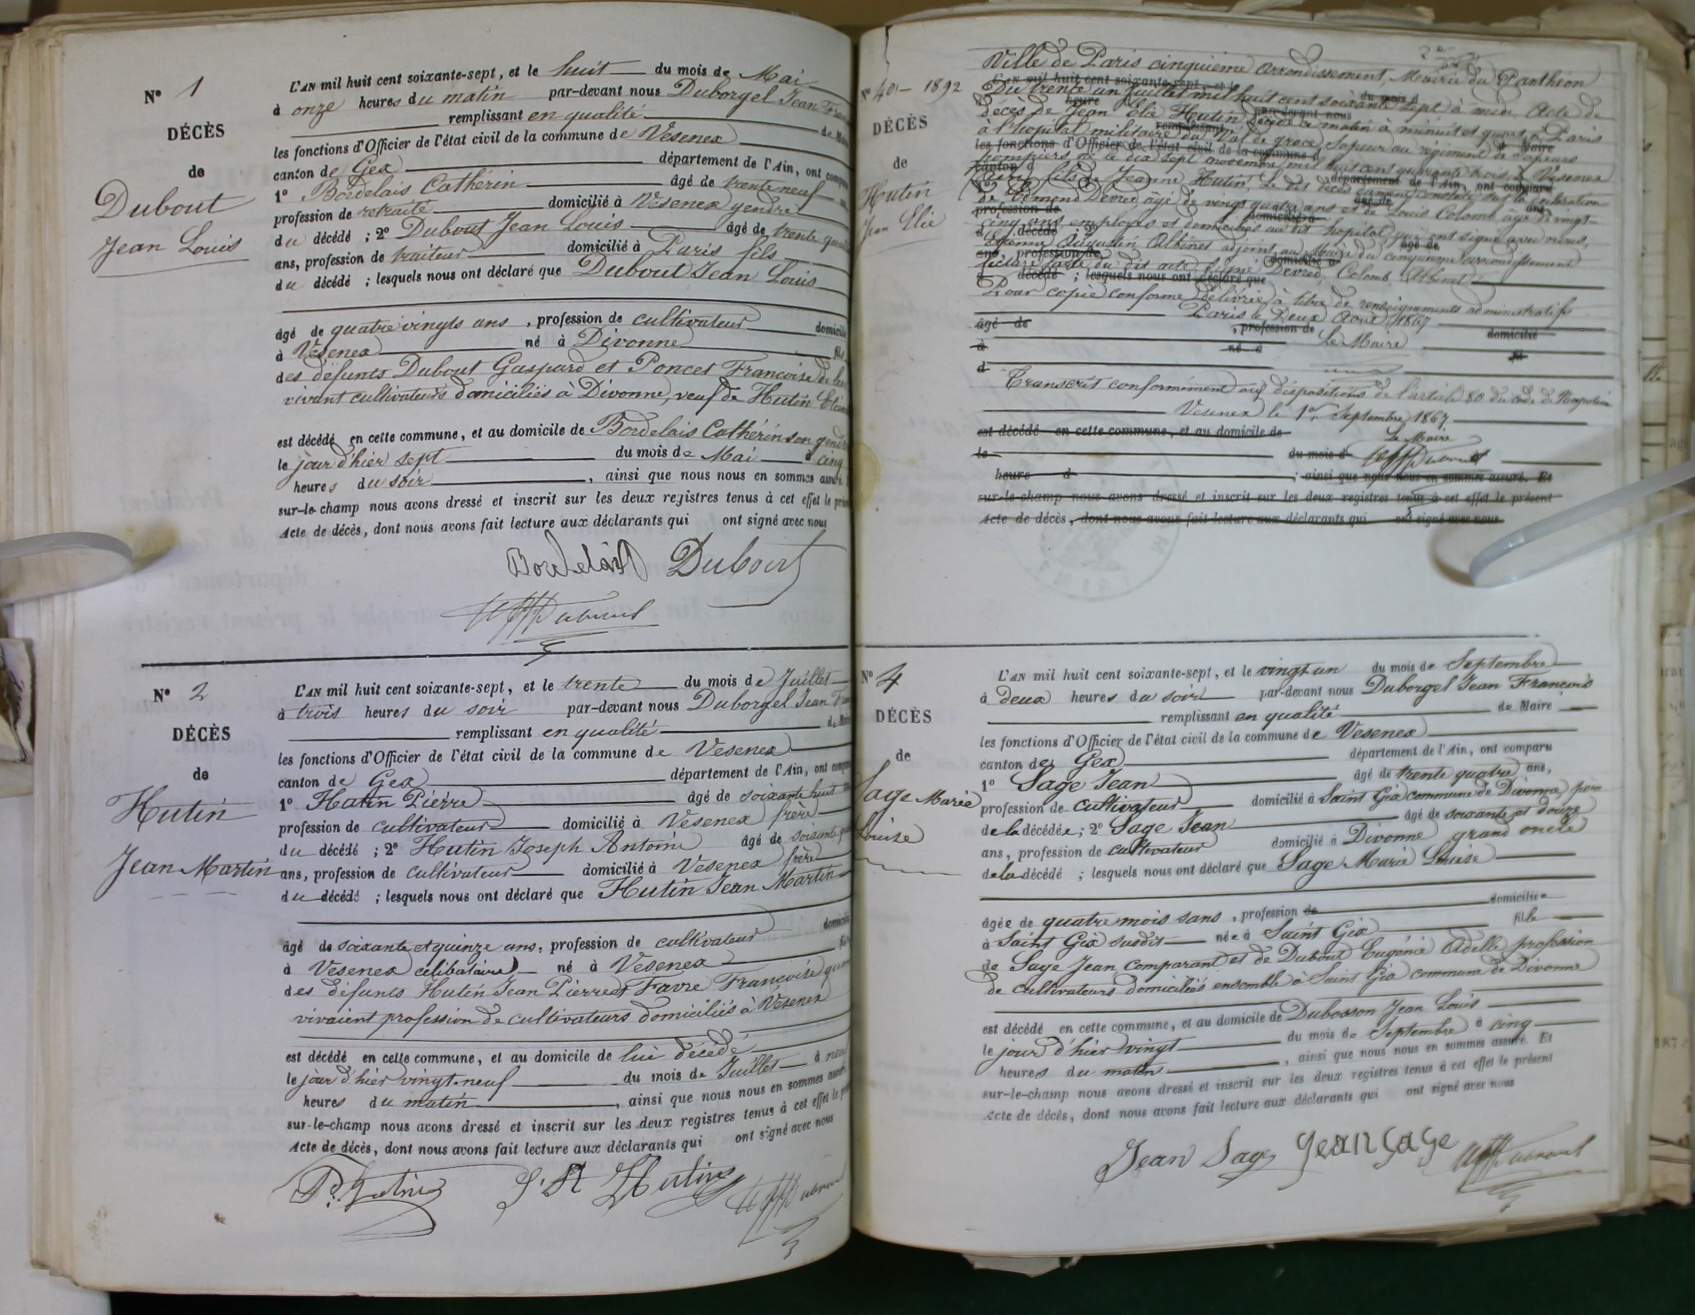 N° 1
DÉCÈS
de
Dubout
Jean Louis
L'AN mil huit cent soixante-sept, et le huit du mois de Mai
à onze heures du matin par-devant nous Duborgel Jean
remplissant en qualité de
les fonctions d'Officier de l'état civil de la commune de Vesenex
canton de Gex département de l'Ain, ont
1° Bordelais Cathérin âgé de trente neuf
profession de retraité domicilié à Vesenex gendre
du décédé ; 2° Dubout Jean Louis âgé de trente
ans, profession de traiteur domicilié à Paris fils
du décédé ; lesquels nous ont déclaré que Dubout Jean Louis
âgé de quatre vingts ans , profession de cultivateur
à Vesenex né à Divonne
des défunts Dubout Gaspard et Poncet Francoise de leur
vivant cultivateurs domiciliés à Divonne, veuf de Hutin
est décédé en cette commune, et au domicile de Bordelais Cathérin son gendre
le jour d'hier sept du mois de Mai à cinq
heures du soir , ainsi que nous nous en sommes
sur-le-champ nous avons dressé et inscrit sur les deux registres tenus à cet effet le
Acte de décès, dont nous avons fait lecture aux déclarants qui ont signé avec nous
Bordelais Dubout
N° 2
DÉCÈS
de
Hutin
Jean Martin
L'AN mil huit cent soixante-sept, et le trente du mois de Juillet
à trois heures du soir par-devant nous Duborgel Jean
remplissant en qualité
les fonctions d'Officier de l'état civil de la commune de Vesenex
canton de Gex département de l'Ain, ont
1° Hutin Pierre âgé de soixante huit
profession de cultivateur domicilié à Vesenex frère
du décédé ; 2° Hutin Joseph Antoine âgé de soixante
ans, profession de cultivateur domicilié à Vesenex frère
du décédé ; lesquels nous ont déclaré que Hutin Jean Martin
âgé de soixante et quinze ans, profession de cultivateur
à Vesenex célibataire né à Vesenex
des défunts Hutin Jean Pierre et Favre Francoise
vivaient profession de cultivateurs domiciliés à Vésenex
est décédé en cette commune, et au domicile de lui décédé
le jour d'hier vingt-neuf du mois de Juillet à
heures du matin , ainsi que nous nous en sommes
sur-le-champ nous avons dressé et inscrit sur les deux registres tenus à cet effet le
Acte de décès, dont nous avons fait lecture aux déclarants qui ont signé avec nous
J. A Hutin
1892
DÉCÈS
de
Hutin
Jean Elie
Ville de Paris cinquième arrondissement Mairie du Panthéon
Du trente un Juillet mil huit cent soixante sept à midi Acte de
décès de Jean Elie Hutin décédé ce matin à minuit et quart à Paris
à l'hopital militaire du Val de grace, Sapeur au régiment de Sapeurs
pompiers né le dix sept novembre mil huit cent quarante trois à Vesenex
fils de Jeanne Hutin. Le dit décès dument constaté sur la déclaration
de Edmond Devred âgé de vingt quatre ans et de Louis Colomb âgé de vingt
cinq ans employés et domiciliés au dit hopital qui ont signé avec nous,
Augustin Albinet adjoint au Maire du cinquième arrondissement
lecture faite du dit acte. Signé Devred, Colomb, Albinet
Pour copie conforme délivrée à titre de renseignements administratifs
Paris le Deux Aout 1867
Le Maire
Transcrit conformément aux dispositions de l'article 80 du code Napoléon
Vesenex le 1er Septembre 1867.
Le Maire
est décédé en cette commune, et au domicile de
le du mois d
heure d , ainsi que nous nous en sommes assuré. Et
sur-le-champ nous avons dressé et inscrit sur les deux registres tenus à cet effet le présent
Acte de décès, dont nous avons fait lecture aux déclarants qui ont signé avec nous
N° 4
DÉCÈS
de
Sage Marie
Louise
L'AN mil huit cent soixante-sept, et le vingt un du mois de Septembre
à deux heures du soir par-devant nous Duborgel Jean François
remplissant en qualité de Maire
les fonctions d'Officier de l'état civil de la commune de Vesenex
canton de Gex département de l'Ain, ont comparu
1° Sage Jean âgé de trente quatre ans,
profession de cultivateur domicilié à Saint Gix commune de Divonne, père
de la décédée ; 2° Sage Jean âgé de soixante et douze
ans, profession de cultivateur domicilié à Divonne grand oncle
de la décédé ; lesquels nous ont déclaré que Sage Marie Louise
âgée de quatre mois sans , profession de domiciliée
à Saint Gix susdit née à Saint Gix fille
de Sage Jean comparant et de Dubout Eugénie Adelle profession
de cultivateurs domiciliés ensemble à Saint Gix commune de Divonne
est décédé en cette commune, et au domicile de Dubosson Jean Louis
le jour d'hier vingt du mois de Septembre à cinq
heures du matin , ainsi que nous nous en sommes assuré. Et
sur-le-champ nous avons dressé et inscrit sur les deux registres tenus à cet effet le présent
Acte de décès, dont nous avons fait lecture aux déclarants qui ont signé avec nous
Jean Sage Jean Sage